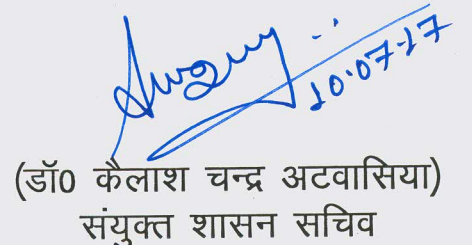 10.07.17
(डॉ0 कैलाश चन्द्र अटवासिया)
संयुक्त शासन सचिव